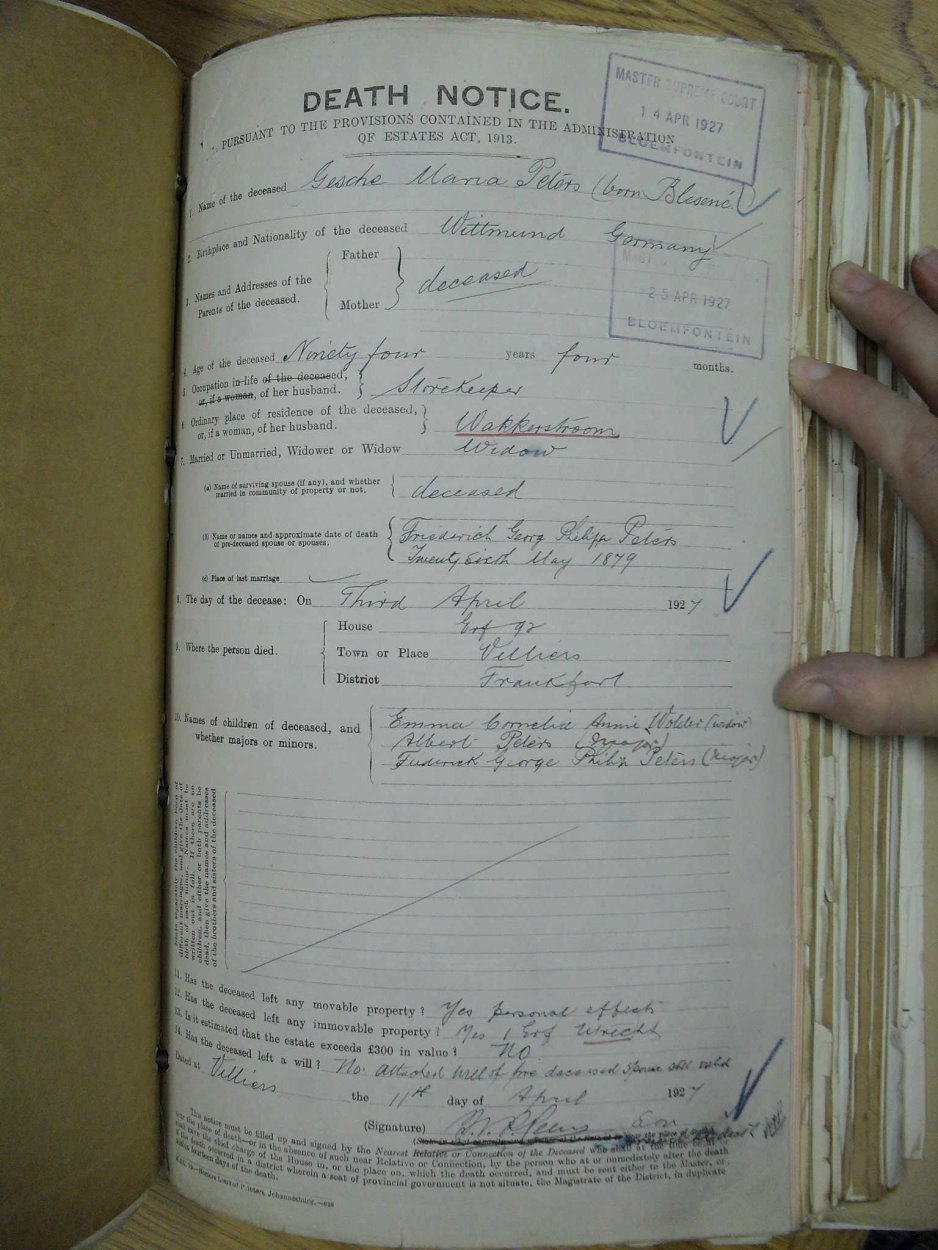 DEATH NOTICE.
PURSUANT TO THE PROVISIONS CONTAINED IN THE ADMINISTRATION
OF ESTATES ACT, 1913.
MASTER SUPREME COURT
14 APR 1927
BLOEMFONTEIN
1. Name of the deceased Gesche Maria Peters (born
2. Birthplace and Nationality of the deceased Wittmund Germany
25 APR 1927
BLOEMFONTEIN
3. Names and Addresses of the Parents of the deceased.
Father
Mother
deceased
4. Age of the deceased Ninety four years four months.
5. Occupation in life of the deceased,
or, if a woman, of her husband. Storekeeper
6. Ordinary place of residence of the deceased,
or, if a woman, of her husband. Wakkerstroom
7. Married or Unmarried, Widower or Widow Widow
(a) Name of surviving spouse (if any), and whether
married in community of property or not. deceased
(b) Name or names and approximate date of death
of pre-deceased spouse or spouses.
Friederich Georg Philipp Peters
Twenty Sixth May 1879
(c) Place of last marriage
8. The day of the decease: On Third April 1927
9. Where the person died.
House Erf 92
Town or Place Villiers
District Frankfort
10. Names of children of deceased, and
whether majors or minors.
Emma Cornelia Annie Wolder (widow)
Albert Peters (major)
Frederick George Philip Peters (major)
State separately the children born of
different marriages, and give the date of
birth of each minor. Names must be
written out in full. If there are no
children, and either or both parents be
dead, then give the names and addresses
of the brothers and sisters of the deceased
11. Has the deceased left any movable property? Yes personal effects
12. Has the deceased left any immovable property? Yes 1 Erf
13. Is it estimated that the estate exceeds £300 in value? No
14. Has the deceased left a will? No attached will of pre deceased spouse still valid
Dated at Villiers the 11th day of April 1927
(Signature) Son
This notice must be filled up and signed by the Nearest Relative or Connection of the Deceased who shall at
near the place of death—or in the absence of such near Relative or Connection, by the person who at or immediately after the death
shall have the chief charge of the House in, or the place on, which the death occurred, and must be sent either to the Master, or,
if the death occurred in a district wherein a seat of provincial government is not situate, the Magistrate of the District, in duplicate
within fourteen days of the death.
Johannesburg.